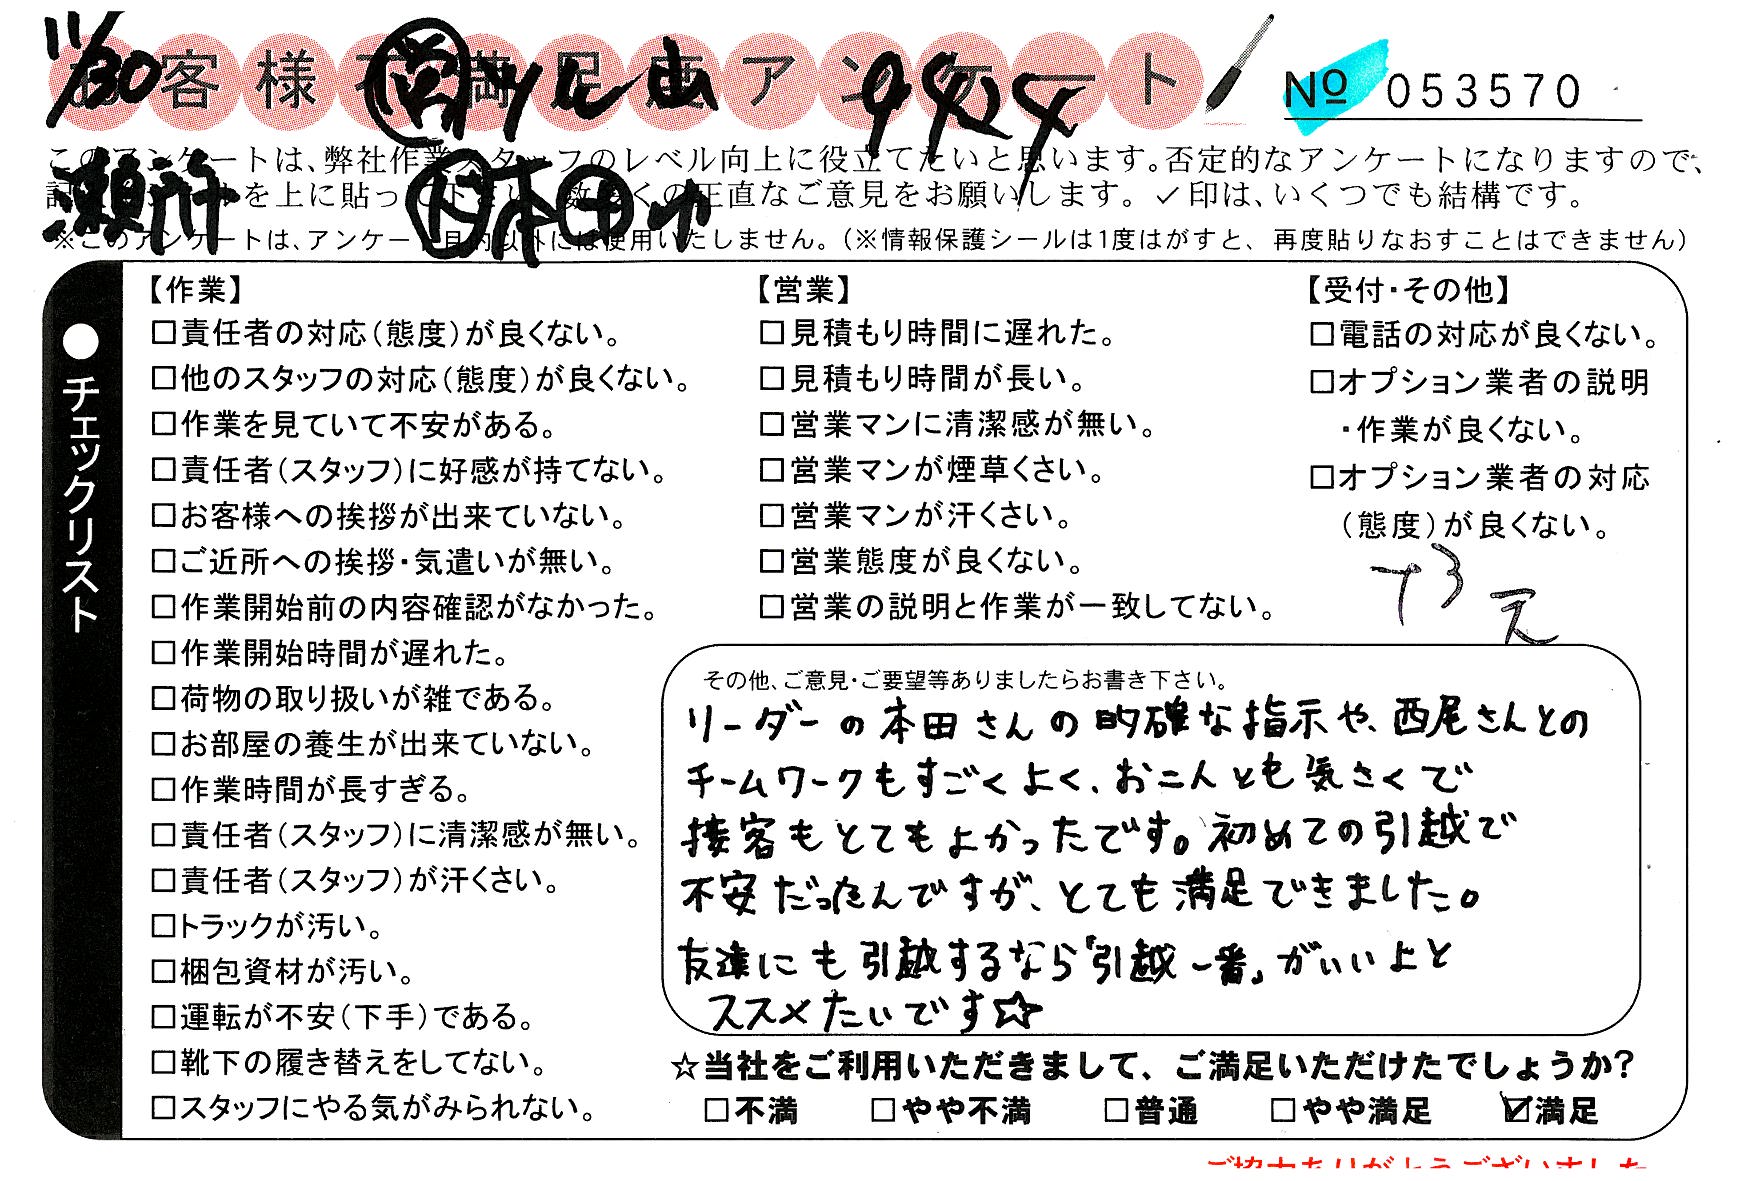 11/30
お客様不満足度アンケート
No 053570
9424
このアンケートは、弊社作業スタッフのレベル向上に役立てたいと思います。否定的なアンケートになりますので、
を上に貼って下さい。数多くの正直なご意見をお願いします。✓印は、いくつでも結構です。
本田
※このアンケートは、アンケート目的以外には使用いたしません。(※情報保護シールは1度はがすと、再度貼りなおすことはできません)
●チェックリスト
【作業】
□責任者の対応(態度)が良くない。
□他のスタッフの対応(態度)が良くない。
□作業を見ていて不安がある。
□責任者(スタッフ)に好感が持てない。
□お客様への挨拶が出来ていない。
□ご近所への挨拶・気遣いが無い。
□作業開始前の内容確認がなかった。
□作業開始時間が遅れた。
□荷物の取り扱いが雑である。
□お部屋の養生が出来ていない。
□作業時間が長すぎる。
□責任者(スタッフ)に清潔感が無い。
□責任者(スタッフ)が汗くさい。
□トラックが汚い。
□梱包資材が汚い。
□運転が不安(下手)である。
□靴下の履き替えをしてない。
□スタッフにやる気がみられない。
【営業】
□見積もり時間に遅れた。
□見積もり時間が長い。
□営業マンに清潔感が無い。
□営業マンが煙草くさい。
□営業マンが汗くさい。
□営業態度が良くない。
□営業の説明と作業が一致してない。
【受付・その他】
□電話の対応が良くない。
□オプション業者の説明
・作業が良くない。
□オプション業者の対応
(態度)が良くない。
その他、ご意見・ご要望等ありましたらお書き下さい。
リーダーの本田さんの的確な指示や、西尾さんとの
チームワークもすごくよく、お二人とも気さくで
接客もとてもよかったです。初めての引越で
不安だったんですが、とても満足できました。
友達にも引越するなら「引越一番」がいいよと
ススメたいです☆
☆当社をご利用いただきまして、ご満足いただけたでしょうか?
□不満 □やや不満 □普通 □やや満足 ☑満足
ご協力ありがとうございました